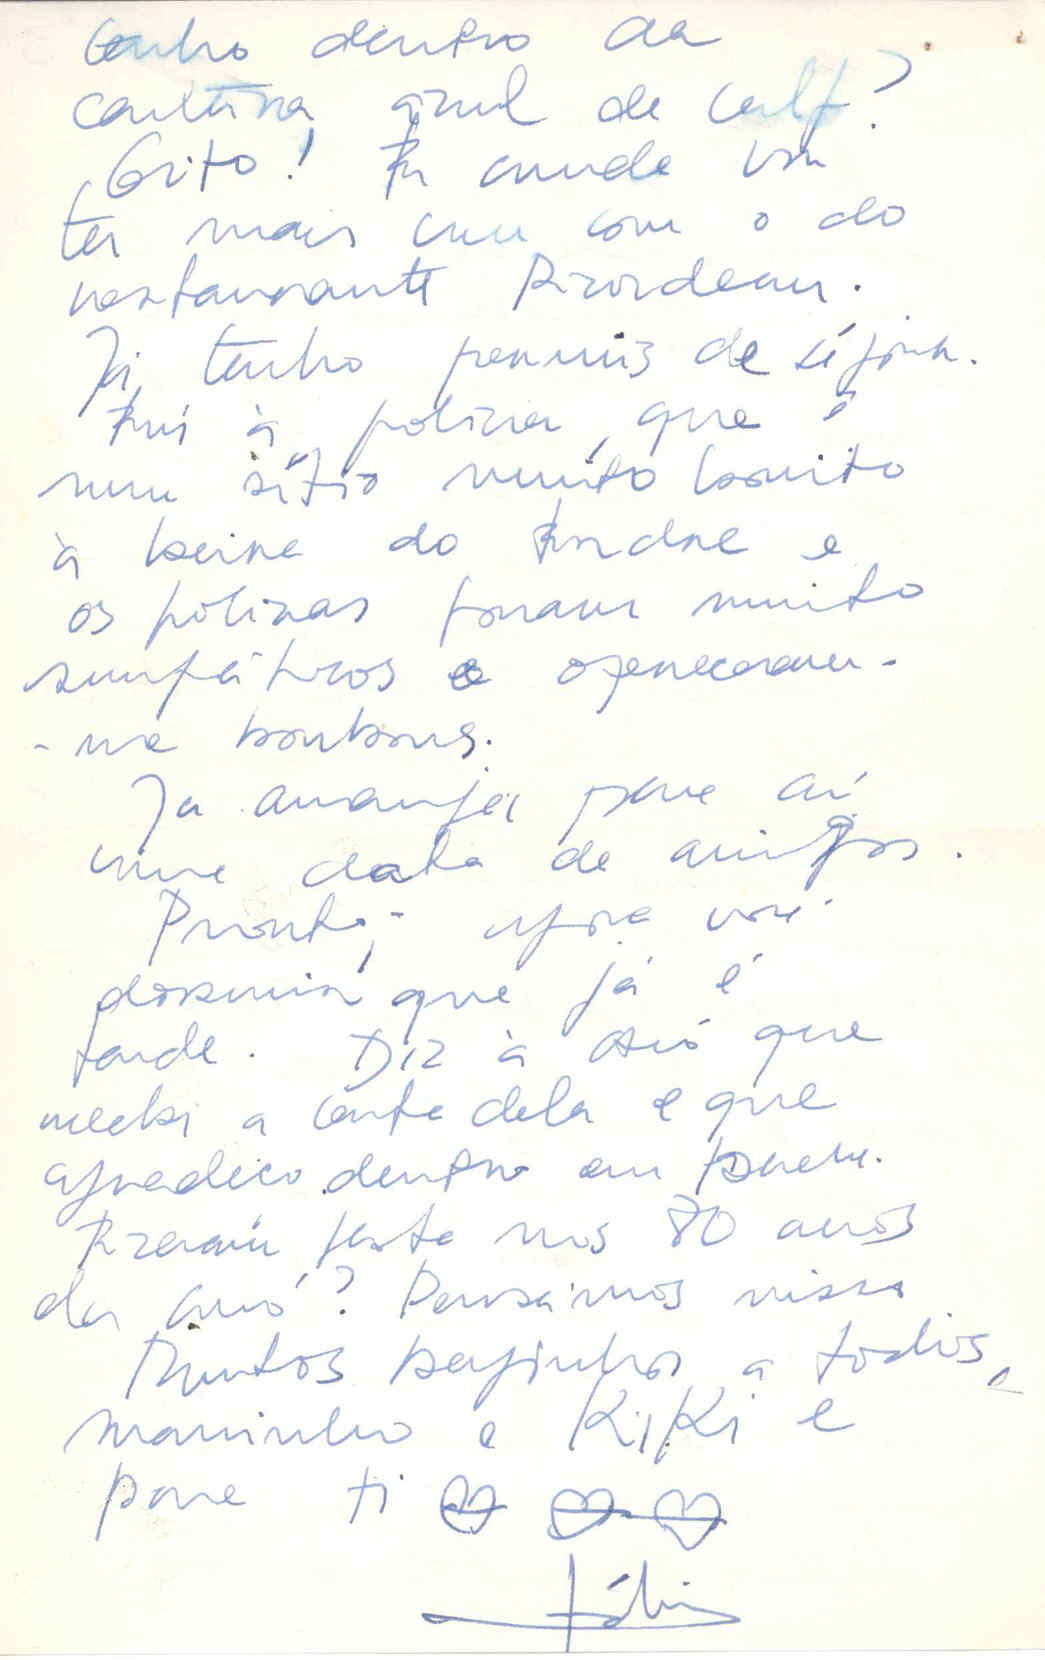 tenho dentro da
carteira azul de calf?
Grito! Fui
ter mais com o do
restaurante
Já tenho permis de séjour.
Fui à polícia, que é
num sítio muito bonito
à beira do e
os polícias foram muito
simpáticos e ofereceram-
-me bonbons.
Já arranjei para aí
uma data de amigos.
Pronto, agora vou
dormir que já é
tarde. Diz à avó que
recebi a carta dela e que
agradeço dentro em breve.
Fizeram festa nos 80 anos
da avó? Pensámos nisso
Muitos beijinhos a todos,
maninho e KiKi e
para ti